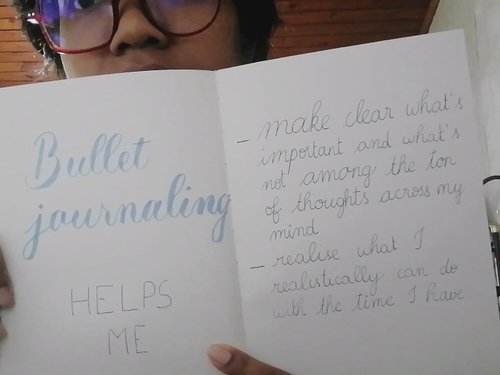 Bullet
journaling
HELPS
ME
- make clear what's
important and what's
not among the ton
of thoughts across my
mind
- realise what I
realistically can do
with the time I have.